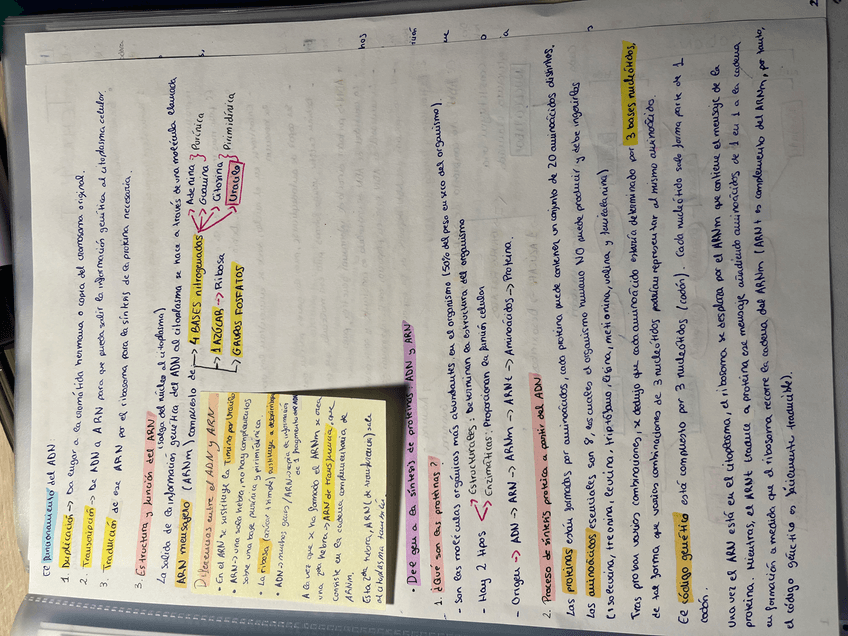 El funcionamiento del ADN
1. Duplicación → Da lugar a la cromátida hermana o copia del cromosoma original.
2. Transcripción → De ADN a ARN para que pueda salir la información genética al citoplasma celular.
3. Traducción de ese ARN por el ribosoma para la síntesis de la proteína necesaria.
3. Estructura y función del ARN
(salga del núcleo al citoplasma)
La salida de la información genética del ADN al citoplasma se hace a través de una molécula llamada
ARN mensajero (ARNm) compuesto de → 4 BASES nitrogenadas → Adenina } Purínica
→ Guanina
→ Citosina } Pirimidínica
→ Uracilo
→ 1 AZÚCAR → Ribosa
→ GRUPOS FOSFATOS
Diferencias entre el ADN y ARN
• En el ARN se sustituye la Timina por Uracilo
• ARN → una sola hebra, no hay complementos
sobre una base púrinica y pirimidínica.
• La ribosa sustituye a desoxirribosa
• ADN → muchos genes / ARN → copia de información
de 1 fragmento
A la vez que se ha formado el ARNm se crea
una 2ª hebra → ARN de transferencia, que
consiste en la cadena complementaria de
ARNm.
Esta 2ª hebra, ARNt (de transferencia) sale
al citoplasma también.
• Del gen a la síntesis de proteínas: ADN y ARN
1. ¿Qué son las protínas?
- Son las moléculas orgánicas más abundantes en el organismo (50% del peso en seco del organismo)
- Hay 2 tipos → Estructurales: Determinan la estructura del organismo
→ Enzimáticas: Proporcionan la función celular
- Origen → ADN → ARN → ARNm → ARNt → Aminoácidos → Proteína.
2. Proceso de síntesis proteica a partir del ADN
Las proteínas están formadas por aminoácidos, cada proteína puede contener un conjunto de 20 aminoácidos distintos.
Los aminoácidos esenciales son 8, los cuales el organismo humano NO puede producir y debe ingerirlos
(isoleucina, treonina, leucina, triptófano, lisina, metionina, valina y fenilalanina)
Tras probar varias combinaciones, se dedujo que cada aminoácido estaría determinado por 3 bases nucleótidos,
de tal forma que varias combinaciones de 3 nucleótidos podrían representar al mismo aminoácido.
El código genético está compuesto por 3 nucleótidos (codón). Cada nucleótido solo forma parte de 1
codón.
Una vez el ARN está en el citoplasma, el ribosoma se desplaza por el ARNm que contiene el mensaje de la
proteína. Mientras, el ARNt traduce a proteína ese mensaje añadiendo aminoácidos de 1 en 1 a la cadena
en formación a medida que el ribosoma recorre la cadena del ARNm (ARNt es complemento del ARNm, por tanto,
el código genético es fácilmente traducible).
2